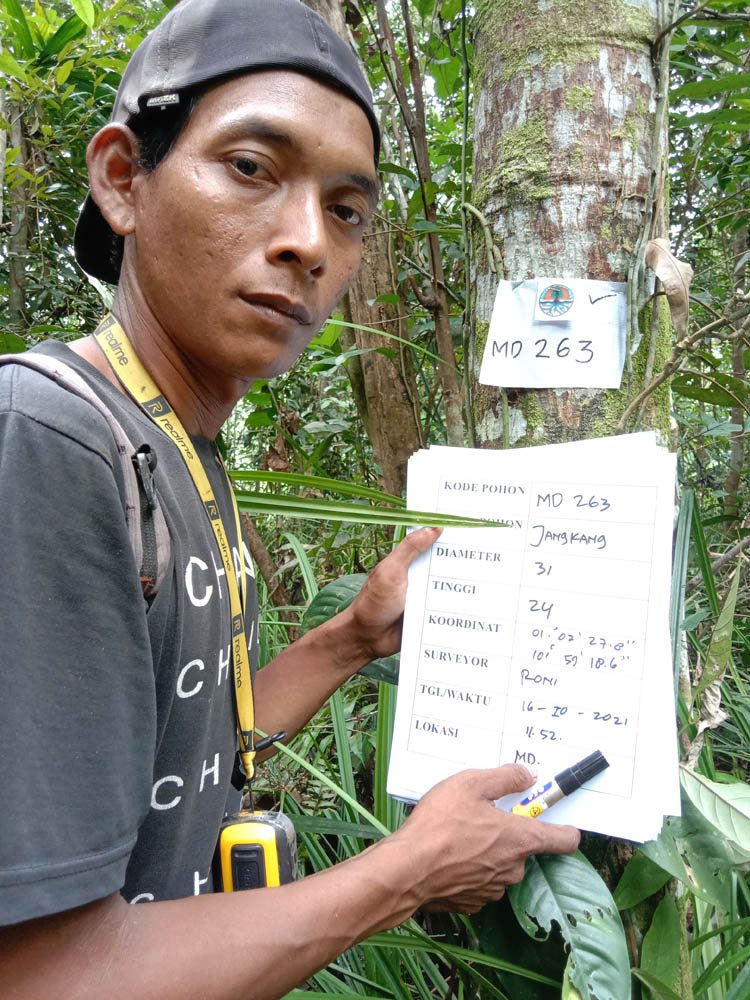 MD 263
KODE POHON MD 263
POHON Jangkang
DIAMETER 31
TINGGI 24
KOORDINAT 01° 02' 27.8"
101° 59' 18.6"
SURVEYOR RONI
TGL/WAKTU 16-10-2021
11.52.
LOKASI MD.
realme
realme
realme
CH
CH
CH
CH